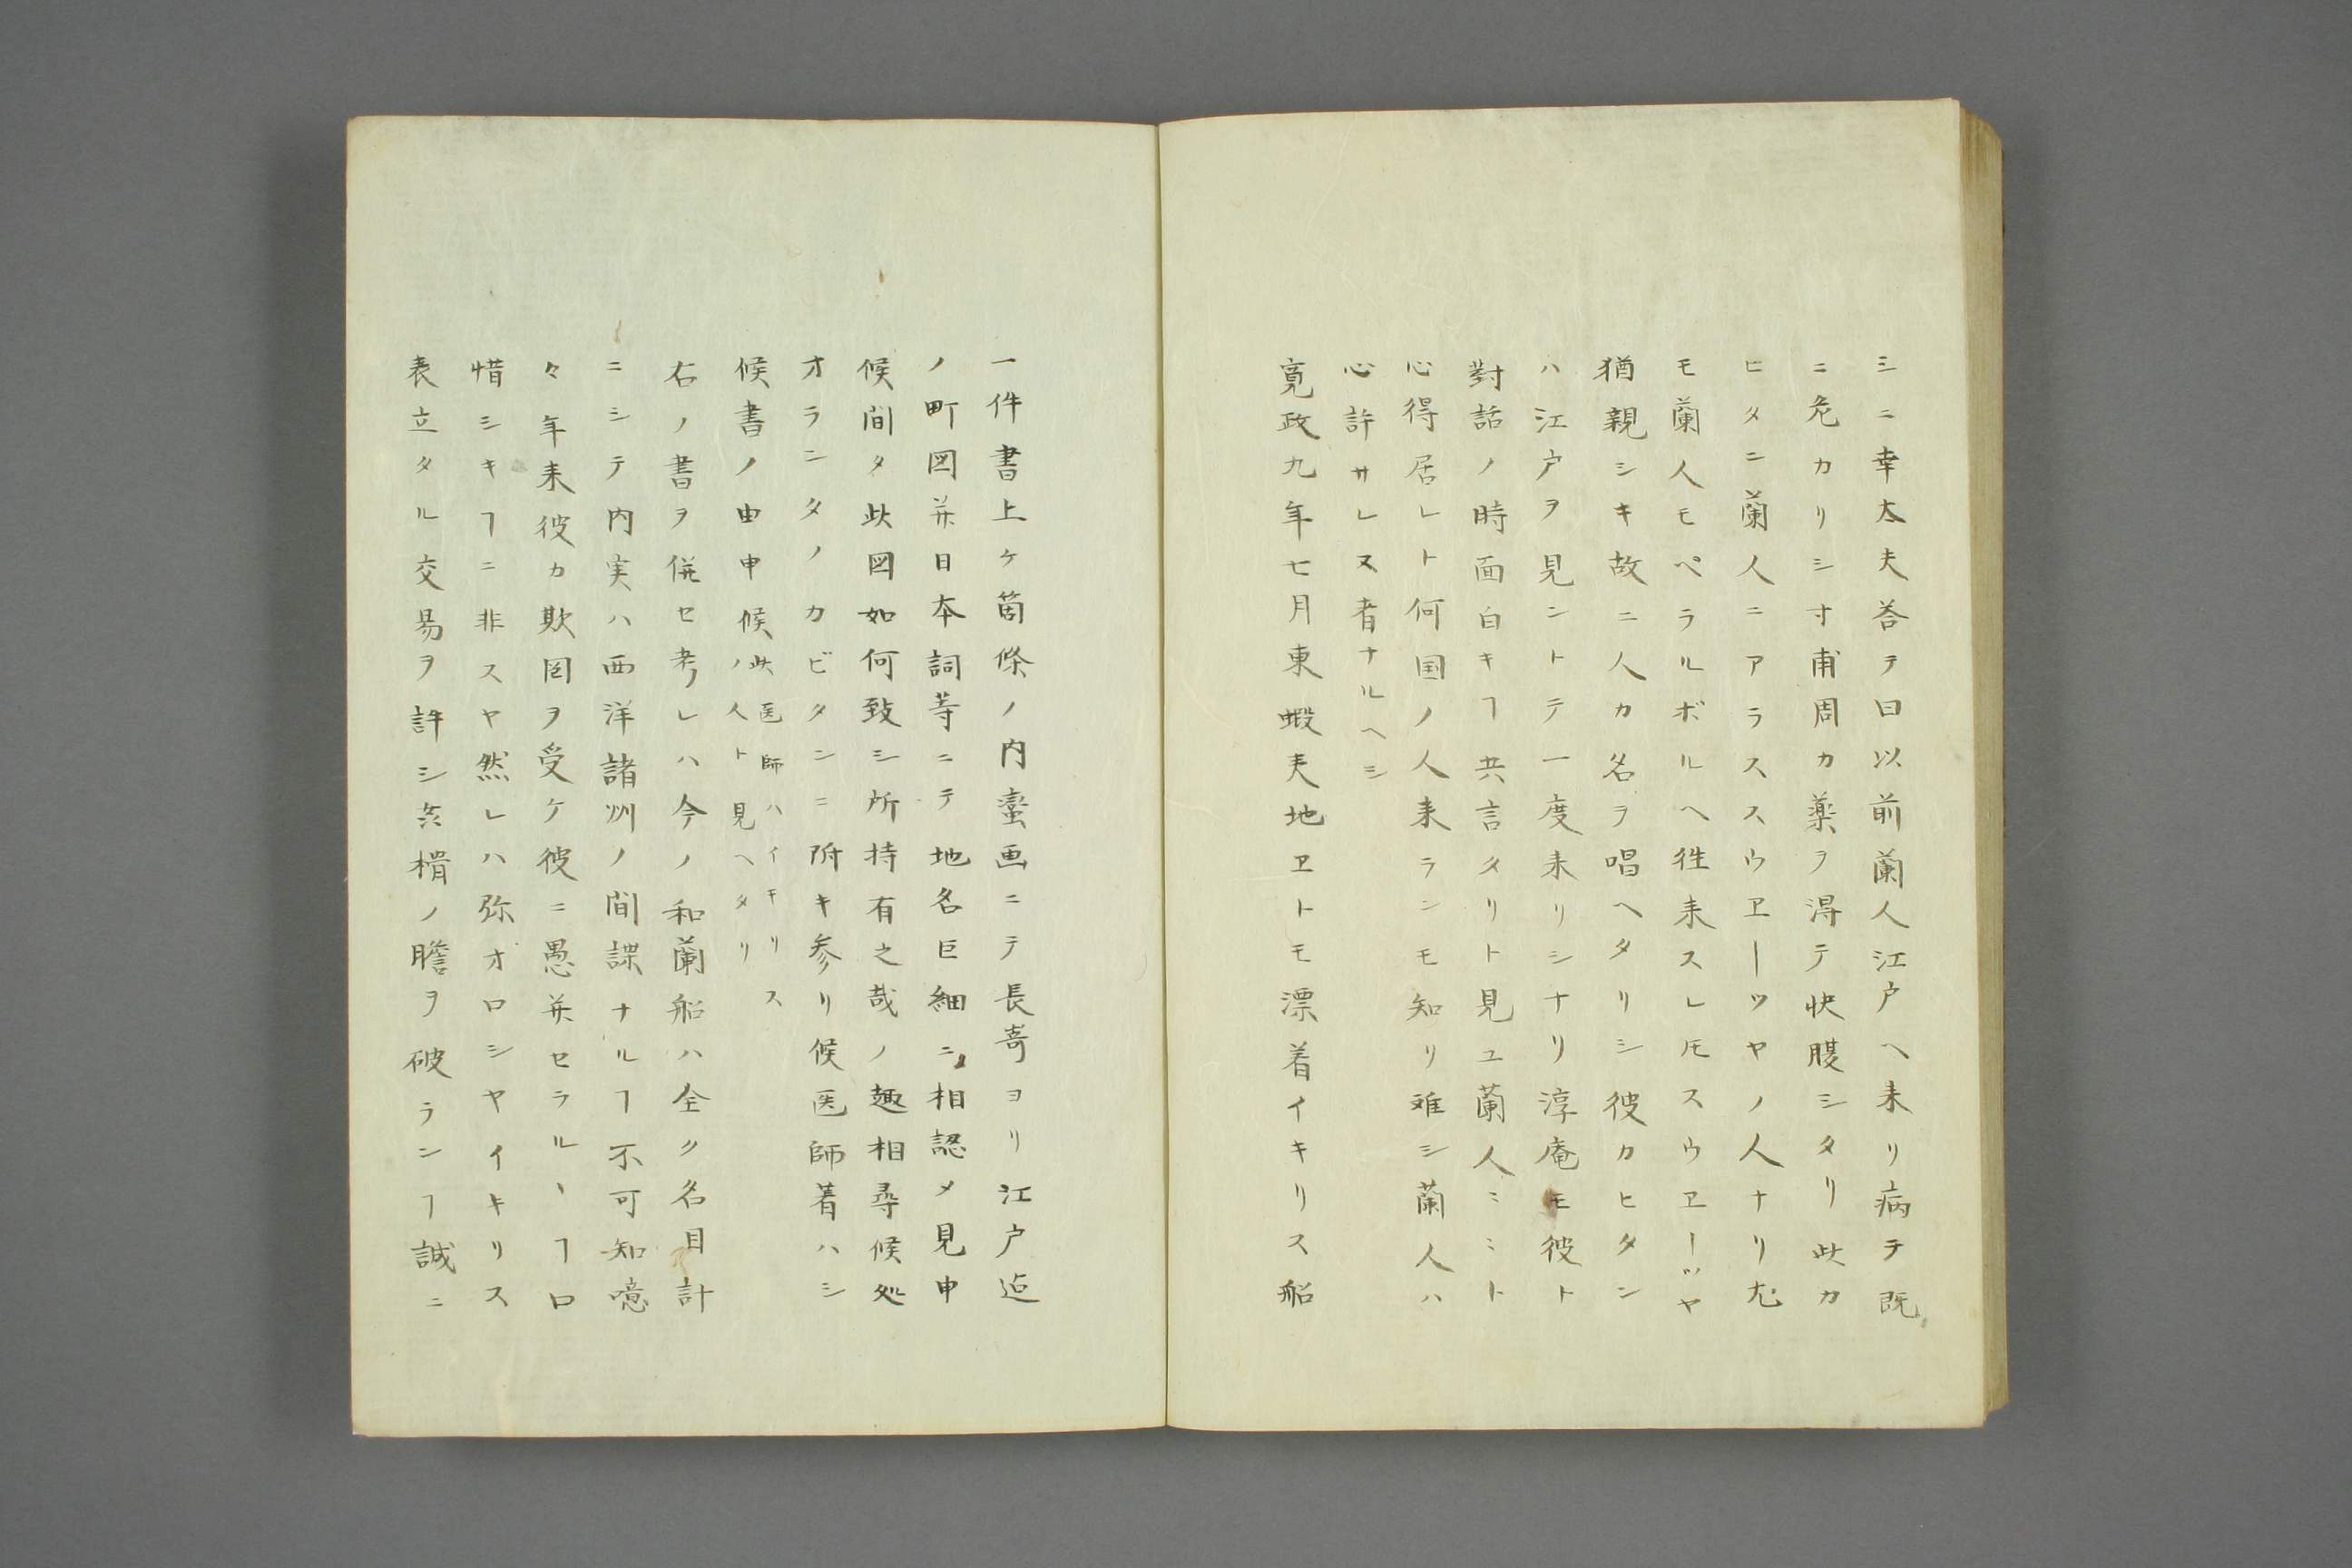 シニ幸太夫答テ曰以前蘭人江戸ヘ来リ病テ既
ニ危カリシ寸甫周カ薬ヲ得テ快腹シタリ此カ
ヒタニ蘭人ニアラススウヱーツヤノ人ナリ尤
モ蘭人モペラルボルヘ徃来スレ𪜈スウヱーツヤ
猶親シキ故ニ人カ名ヲ唱ヘタリシ彼カヒタン
ハ江戸ヲ見ントテ一度来リシナリ淳庵モ彼ト
對話ノ時面白キヿ共言タリト見ユ蘭人ミミト
心得居レト何国ノ人来ランモ知リ难シ蘭人ハ
心許サレヌ者ナルヘシ
寛政九年七月東蝦夷地ヱトモ漂着イキリス船
一件書上ケ箇條ノ内蛮画ニテ長嵜ヨリ江戸迠
ノ町図并日本詞等ニテ地名巨細ニ相認メ見申
候間タ此図如何致シ所持有之哉ノ趣相尋候処
オランタノカビタンニ附キ参リ候医師著ハシ
候書ノ由申候此医師ハイキリス
ノ人ト見ヘタリ
右ノ書ヲ併セ考レハ今ノ和蘭船ハ全ク名目計
ニシテ内実ハ西洋諸州ノ間諜ナルヿ不可知噫
々年来彼カ欺罔ヲ受ケ彼ニ愚弄セラルヽヿ口
惜シキヿニ非スヤ然レハ弥オロシヤイキリス
表立タル交易ヲ許シ姦猾ノ膽ヲ破ランヿ誠ニ